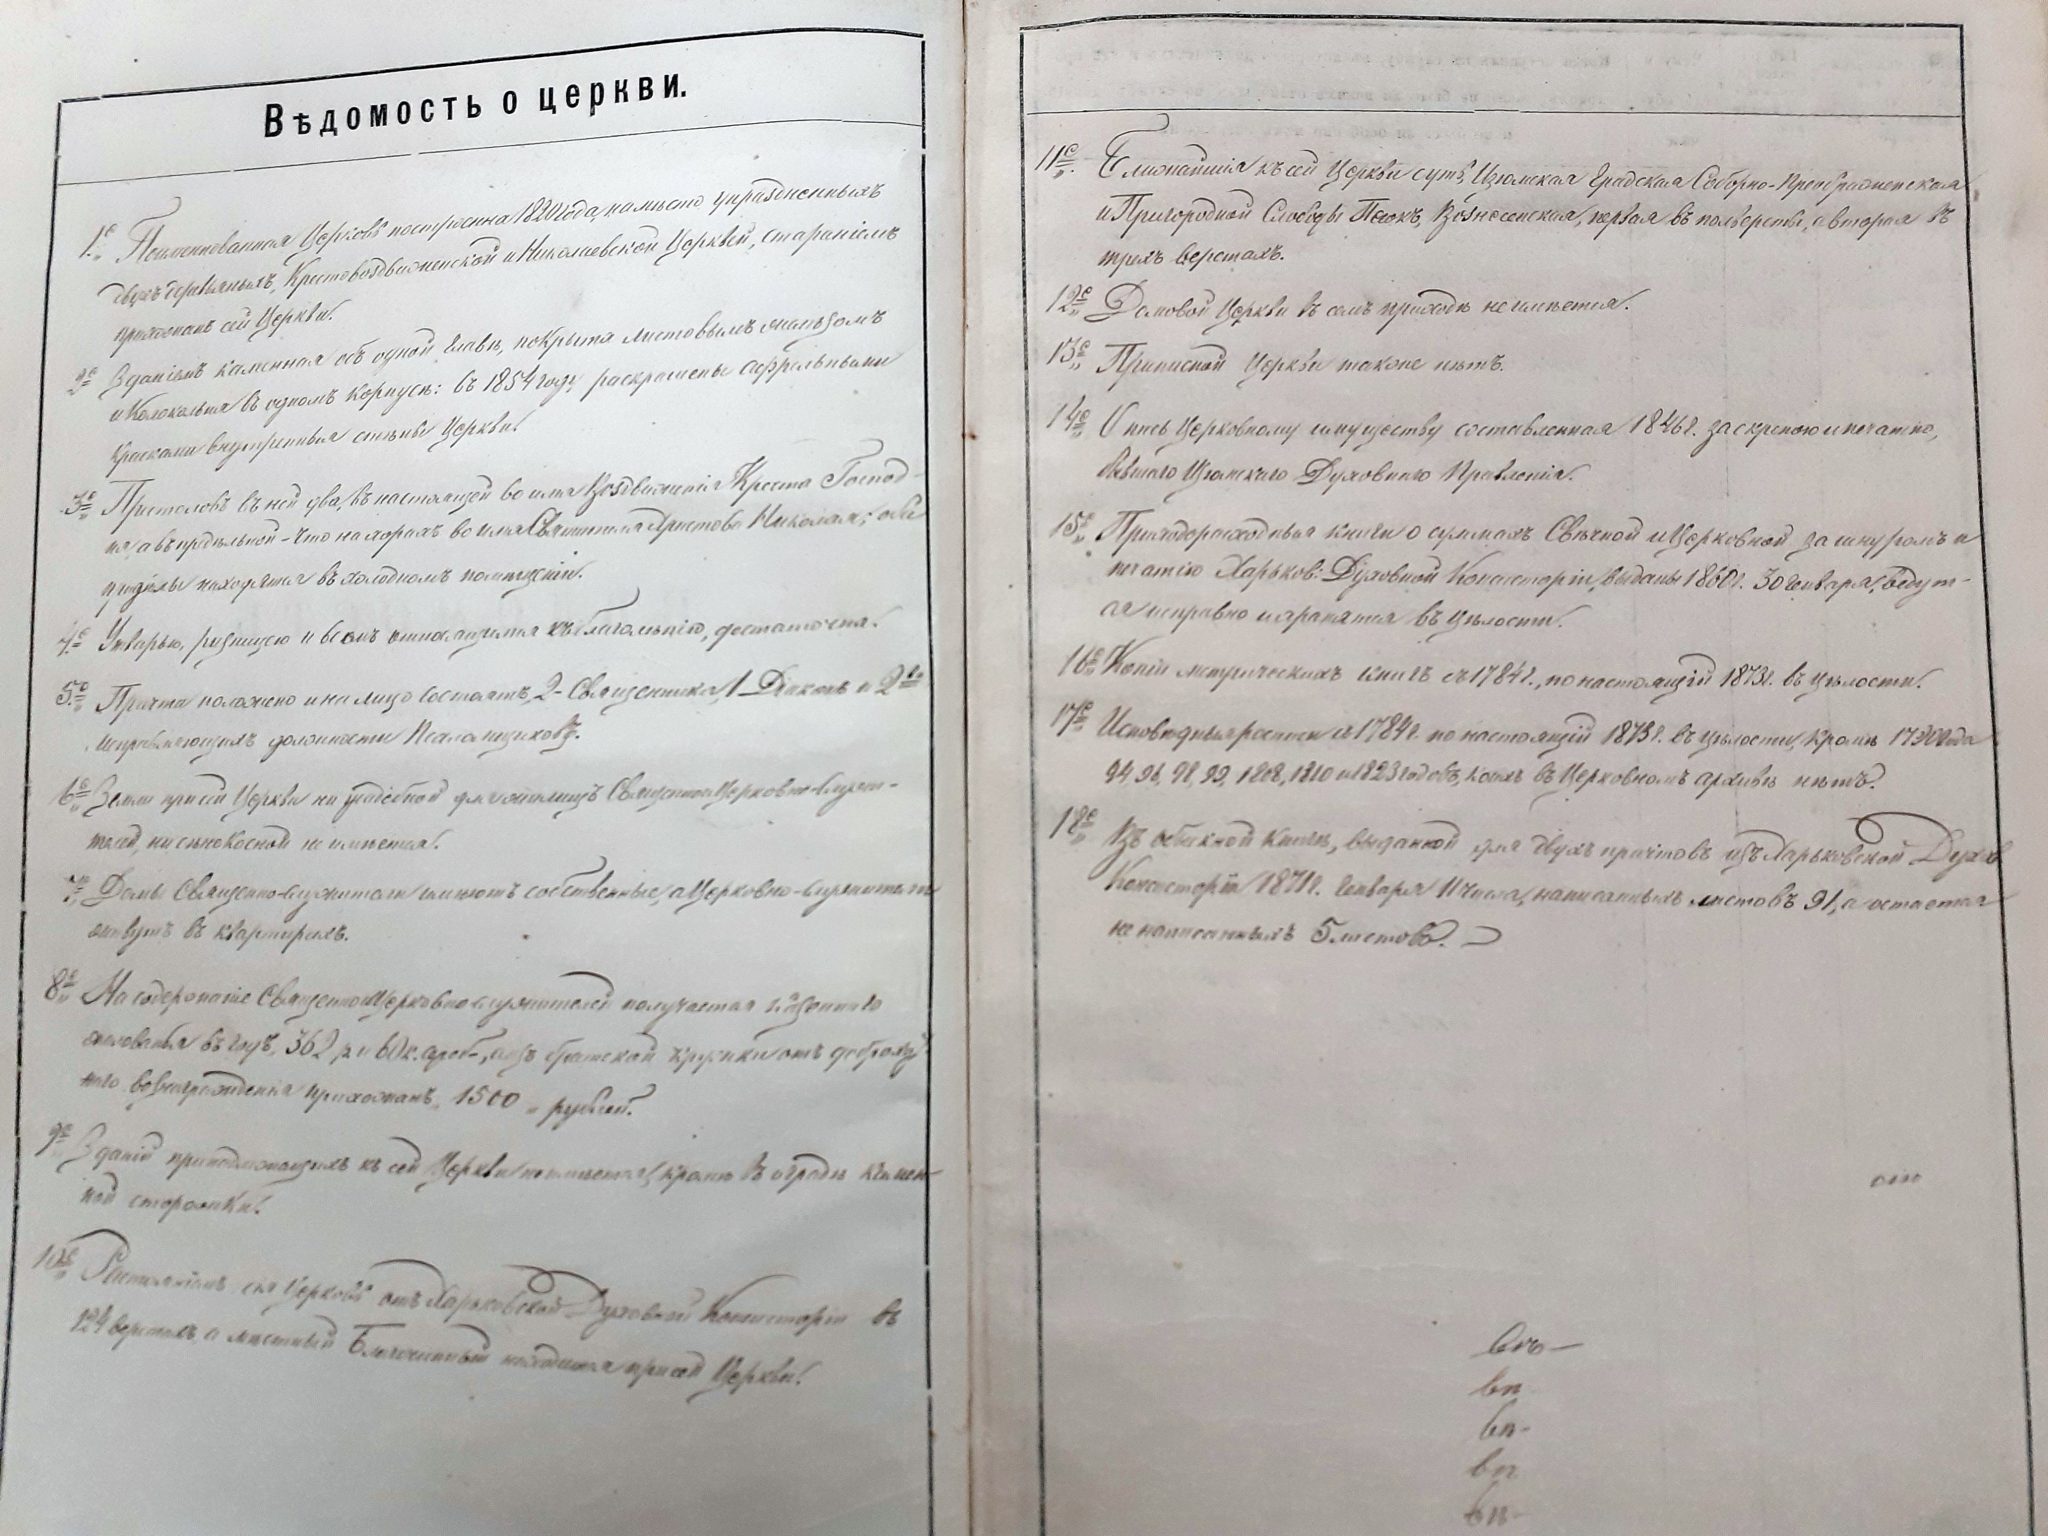 Вѣдомость о церкви.
1е. Поименованная Церковь построена 1820 года, на мѣсто упраздненныхъ
двухъ деревяныхъ, Крестовоздвиженской и Николаевской Церквей, стараніемъ
прихожанъ сей Церкви.
2е Зданіемъ каменная объ одной главѣ, покрыта листовымъ желѣзомъ
и Колокольня въ одномъ корпусѣ: въ 1854 году раскрашены
красками внутреннія стѣны Церкви.
3е Престоловъ въ ней два, въ настоящей во имя Воздвиженія Креста Господ-
ня, а въ придѣльной - что на хорахъ во имя Святителя Христова Николая; оба
придѣлы находятся въ холодномъ помѣщеніи.
4е Утварью, ризницею и всемъ относящимся къ благолѣпію, достаточна.
5е Причта положено и на лицо состоятъ, 2 - Священника, 1 Діаконъ и 2
исправляющихъ должности Псаломщиковъ.
6е Земли при сей Церкви ни усадебной для жилищъ Священно и Церковно-служи-
телей, ни сѣнокосной не имѣется.
7е Домы Священно-служители имѣютъ собственные, а Церковно-служители
живутъ въ квартирахъ.
8е На содержаніе Священно и Церковно-служителей получается казеннаго
жалованья въ годъ, 362 р. и 60 к. сереб., а изъ братской кружки отъ доброхот-
наго вознагражденія прихожанъ 1500 „ рублей.
9е Зданій принадлежащихъ къ сей Церкви не имѣется, кромѣ въ оградѣ камен-
ной сторожки.
10е Разстояніемъ сія Церковь отъ Харьковской Духовной Консисторіи въ
124 верстахъ, а мѣстный Благочинный находится при сей Церкви.
11е. Ближайшія къ сей Церкви суть, Изюмская Градская Соборно-Преображенская
и Пригородной Слободы Песокъ, Вознесенская, первая въ полверсты, а вторая въ
трехъ верстахъ.
12е Домовой Церкви въ семъ приходѣ не имѣется.
13е Приписной Церкви также нѣтъ.
14е Опись Церковному имуществу составленная 1846 г. за скрепою и печатію,
бывшаго Изюмскаго Духовнаго Правленія.
15е Приходорасходныя книги о суммахъ Свѣчной и Церковной за шнуромъ и
печатію Харьков: Духовной Консисторіи, выданы 1860 г. 30 Генваря, ведут-
ся исправно и хранятся въ цѣлости.
16е Копіи метрическихъ книгъ съ 1784 г., по настоящій 1873 г. въ цѣлости.
17е Исповѣдныя росписи съ 1784 г. по настоящій 1873 г. въ цѣлости, кромѣ 1790 года
94, 96, 98, 99, 1808, 1810 и 1823 годовъ, коихъ въ Церковномъ архивѣ нѣтъ.
18е Въ обыскной книгѣ, выданной для двухъ причтовъ изъ Харьковской Духов
Консисторіи 1871 г. Генваря 11 числа, написанныхъ листовъ 91, а остается
не написанныхъ 5 листовъ.